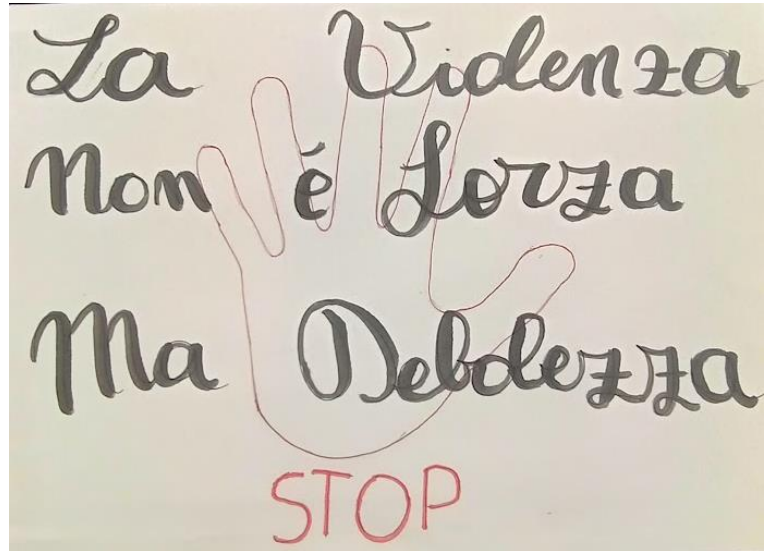 La Violenza
Non é forza
Ma Debolezza
STOP